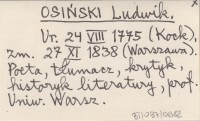 OSIŃSKI Ludwik.
Ur. 24 VIII 1775 (Kock),
zm. 27 XI 1838 (Warszawa).
Poeta, tłumacz, krytyk,
historyk literatury, prof.
Uniw. Warsz.